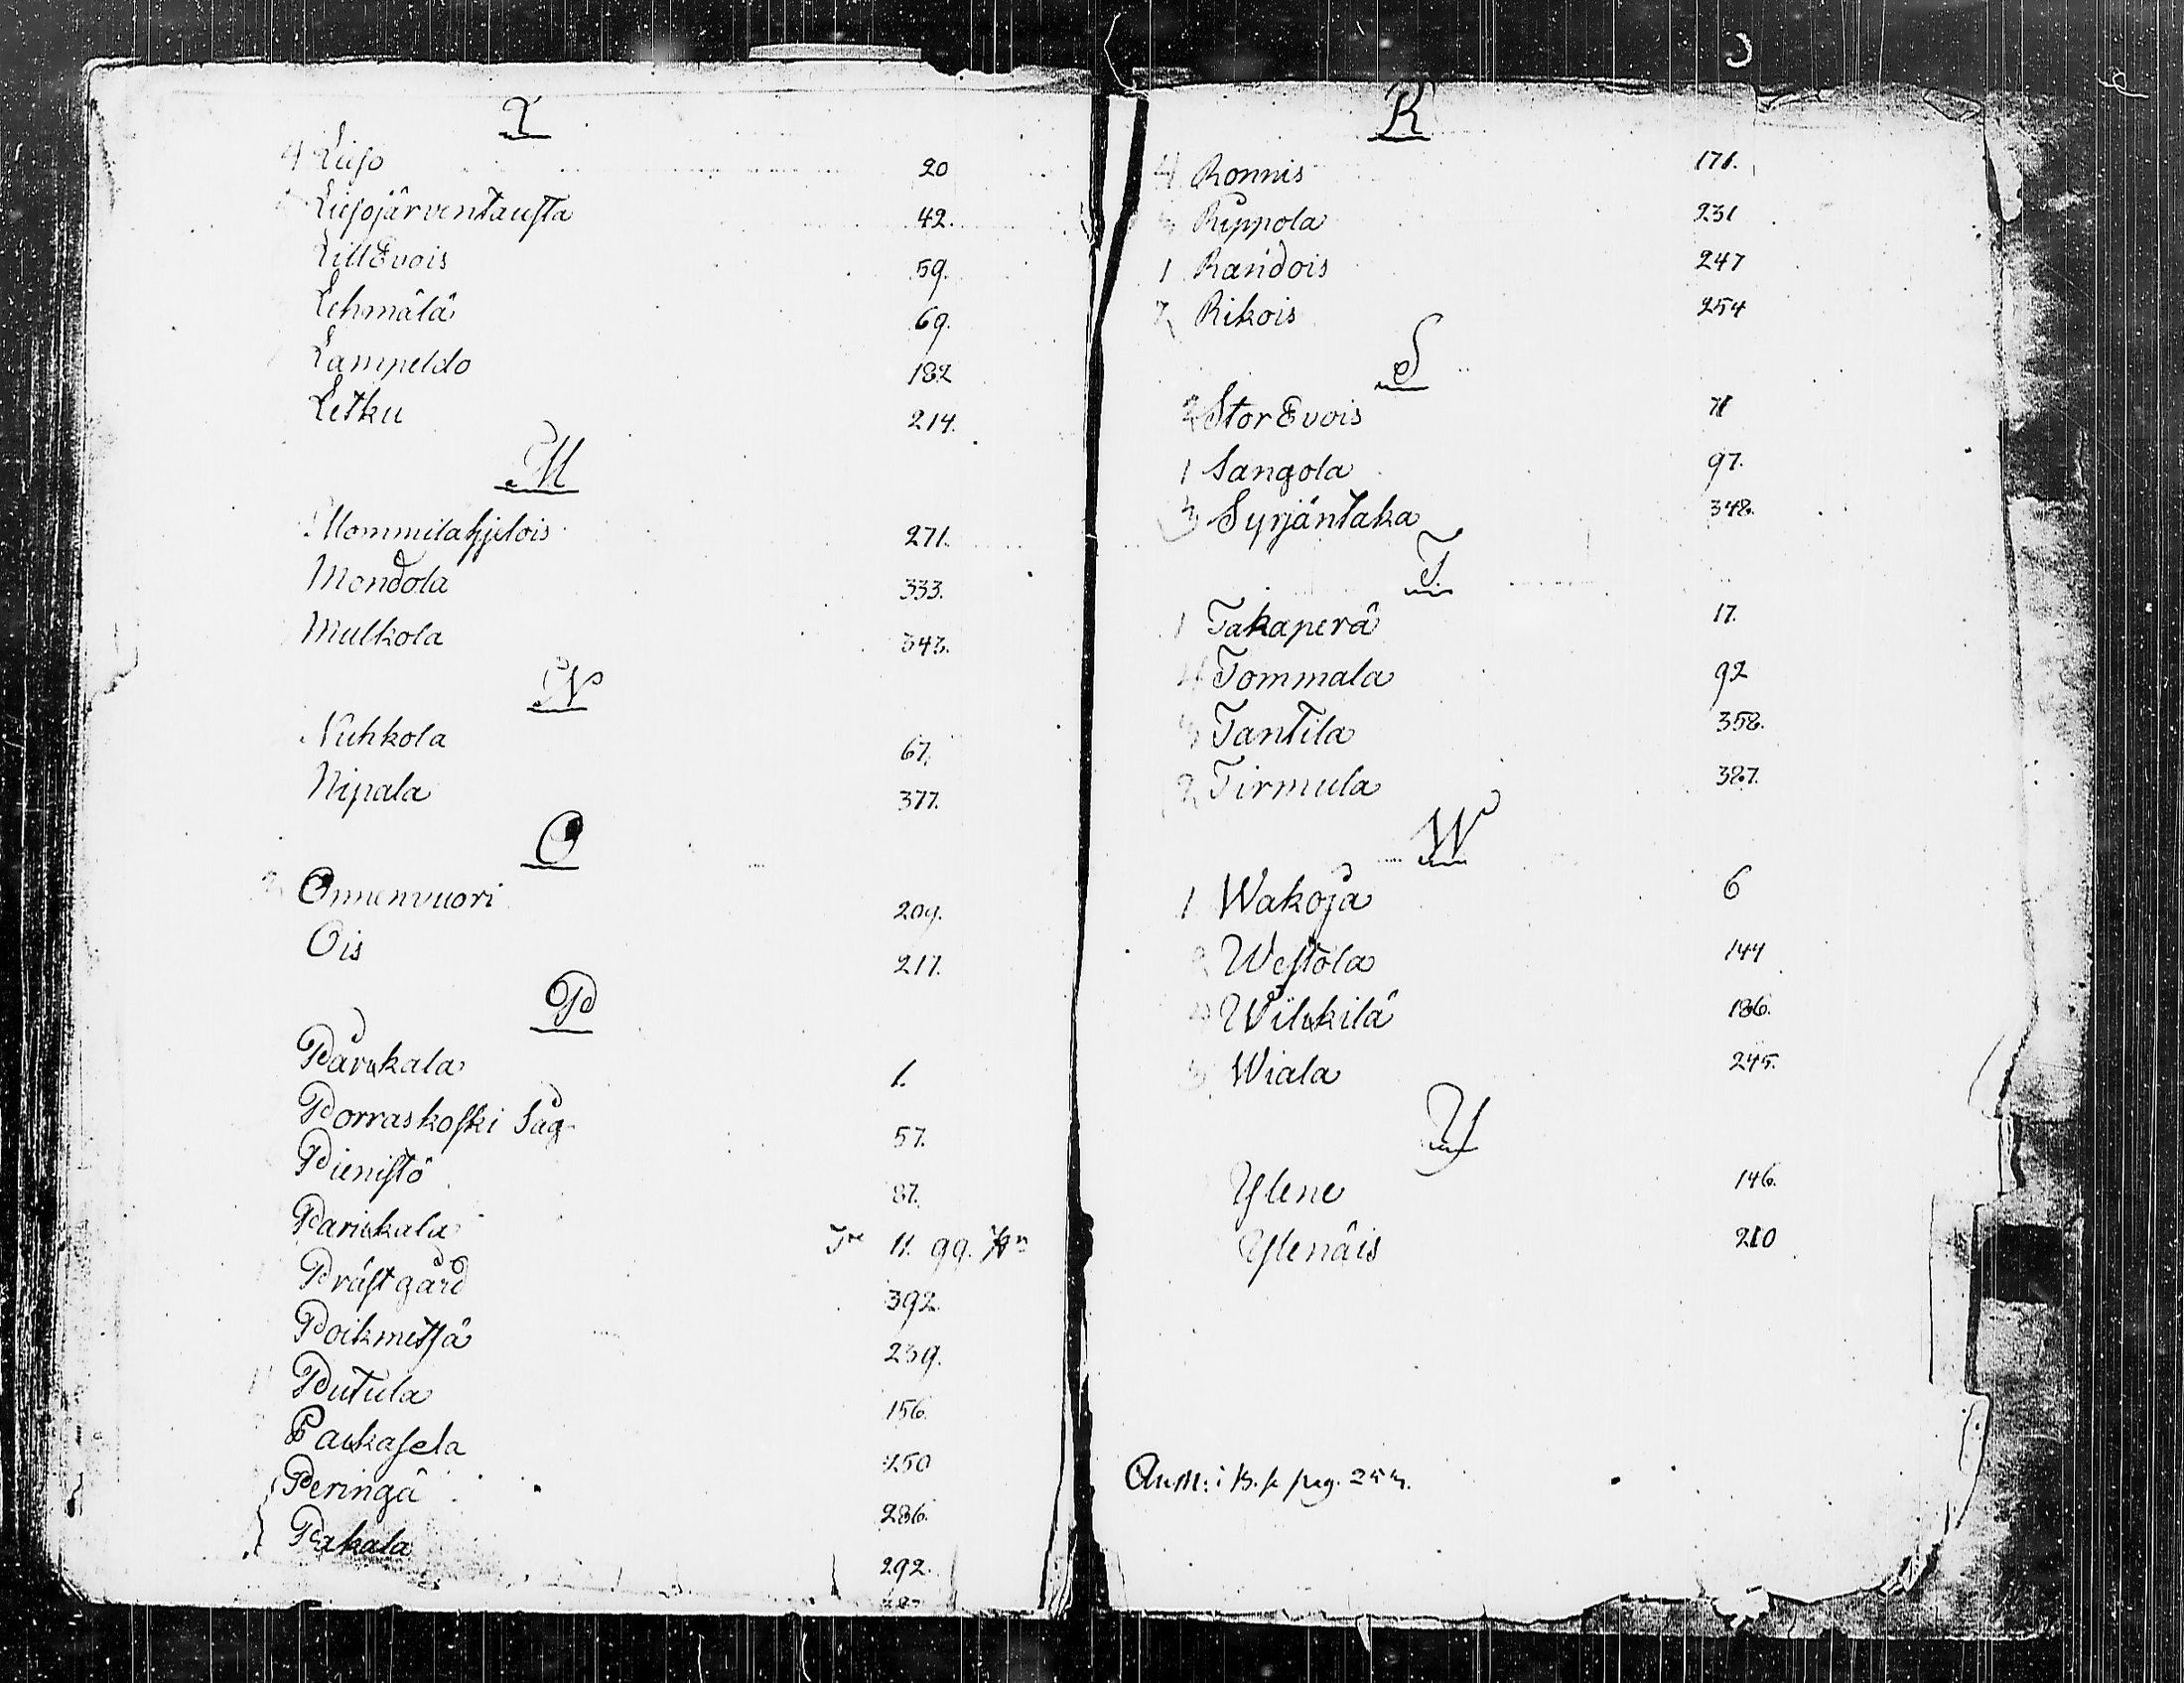 L
4 Lieso 20
Liesojärventausta 42.
Lill Evois 59.
Lehmälä 69.
Lampeldo 182
Letku 214.
M
Mommilahjelois 271.
Mendola 333.
Mulkola 343.
N
Nuhkola 67.
Nipala 377.
O
2 Onnenvuori 209.
Ois 217.
P
Parikkala 1.
Porraskoski Såg 57.
Pienistö 87.
Parikkala 11. 99.
Prästgård 392.
Poikmetsä 239.
Putula 156.
Paukasela 250
Peringä 286.
Pakala 292.
R
4 Ronnis 171.
Rippola 231
1 Randois 247
2 Rikois 254
S
2 Stor Evois 71
1 Sangola 97.
3 Syrjäntaka 348.
T
1 Takaperä 17.
4 Tommala 92
3 Tantila 358.
2 Tirmula 387.
W
1 Wakoja 6
2 Westola 144
Wilkkilä 186.
3 Wiala 245.
Y
Ylene 146.
Ylenäis 210
pag. 253.